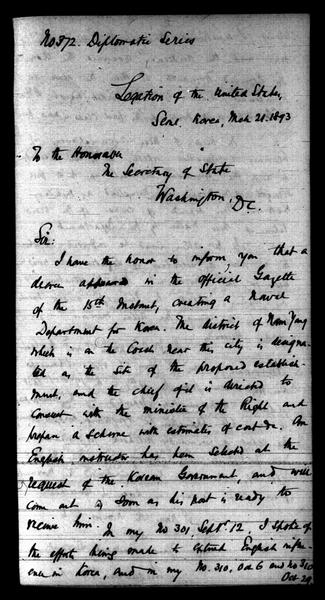 No 372. Diplomatic Series
Legation of the United States,
Seoul Korea, Mch 21. 1893
To the Honorable
The Secretary of State
Washington, D.C.
Sir:
I have the honor to inform you that a
decree appeared in the Official Gazette
of the 15th Instant, creating a Naval
Department for Korea. The district of Nam Yang
which is on the Coast near this city is designa-
ted as the site of the proposed establish-
ment, and the chief of it is directed to
consult with the minister of the Right and
prepare a scheme with estimates of cost &c. An
English instructor has been selected at the
request of the Korean Government, and will
come out as soon as his post is ready to
receive him. In my No 301, Sept. 12, I spoke of
the efforts being made to extend English influ-
ence in Korea, and in my No. 310, Oct 6 and no
Oct 29